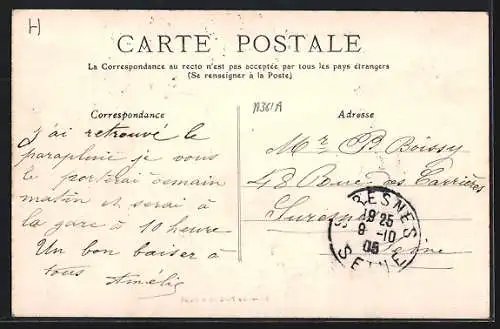 H
CARTE POSTALE
La Correspondance au recto n'est pas acceptée par tous les pays étrangers
(Se renseigner à la Poste)
A361A
Correspondance
Adresse
J'ai retrouvé le
parapluie je vous
le porterai demain
matin et serai à
la gare à 10 heure
Un bon baiser à
tous Amélie
Mr B. Boissy
48 Rue des Carrières
Suresnes
Seine
SURESNES
19 25
9 -10
05
SEINE